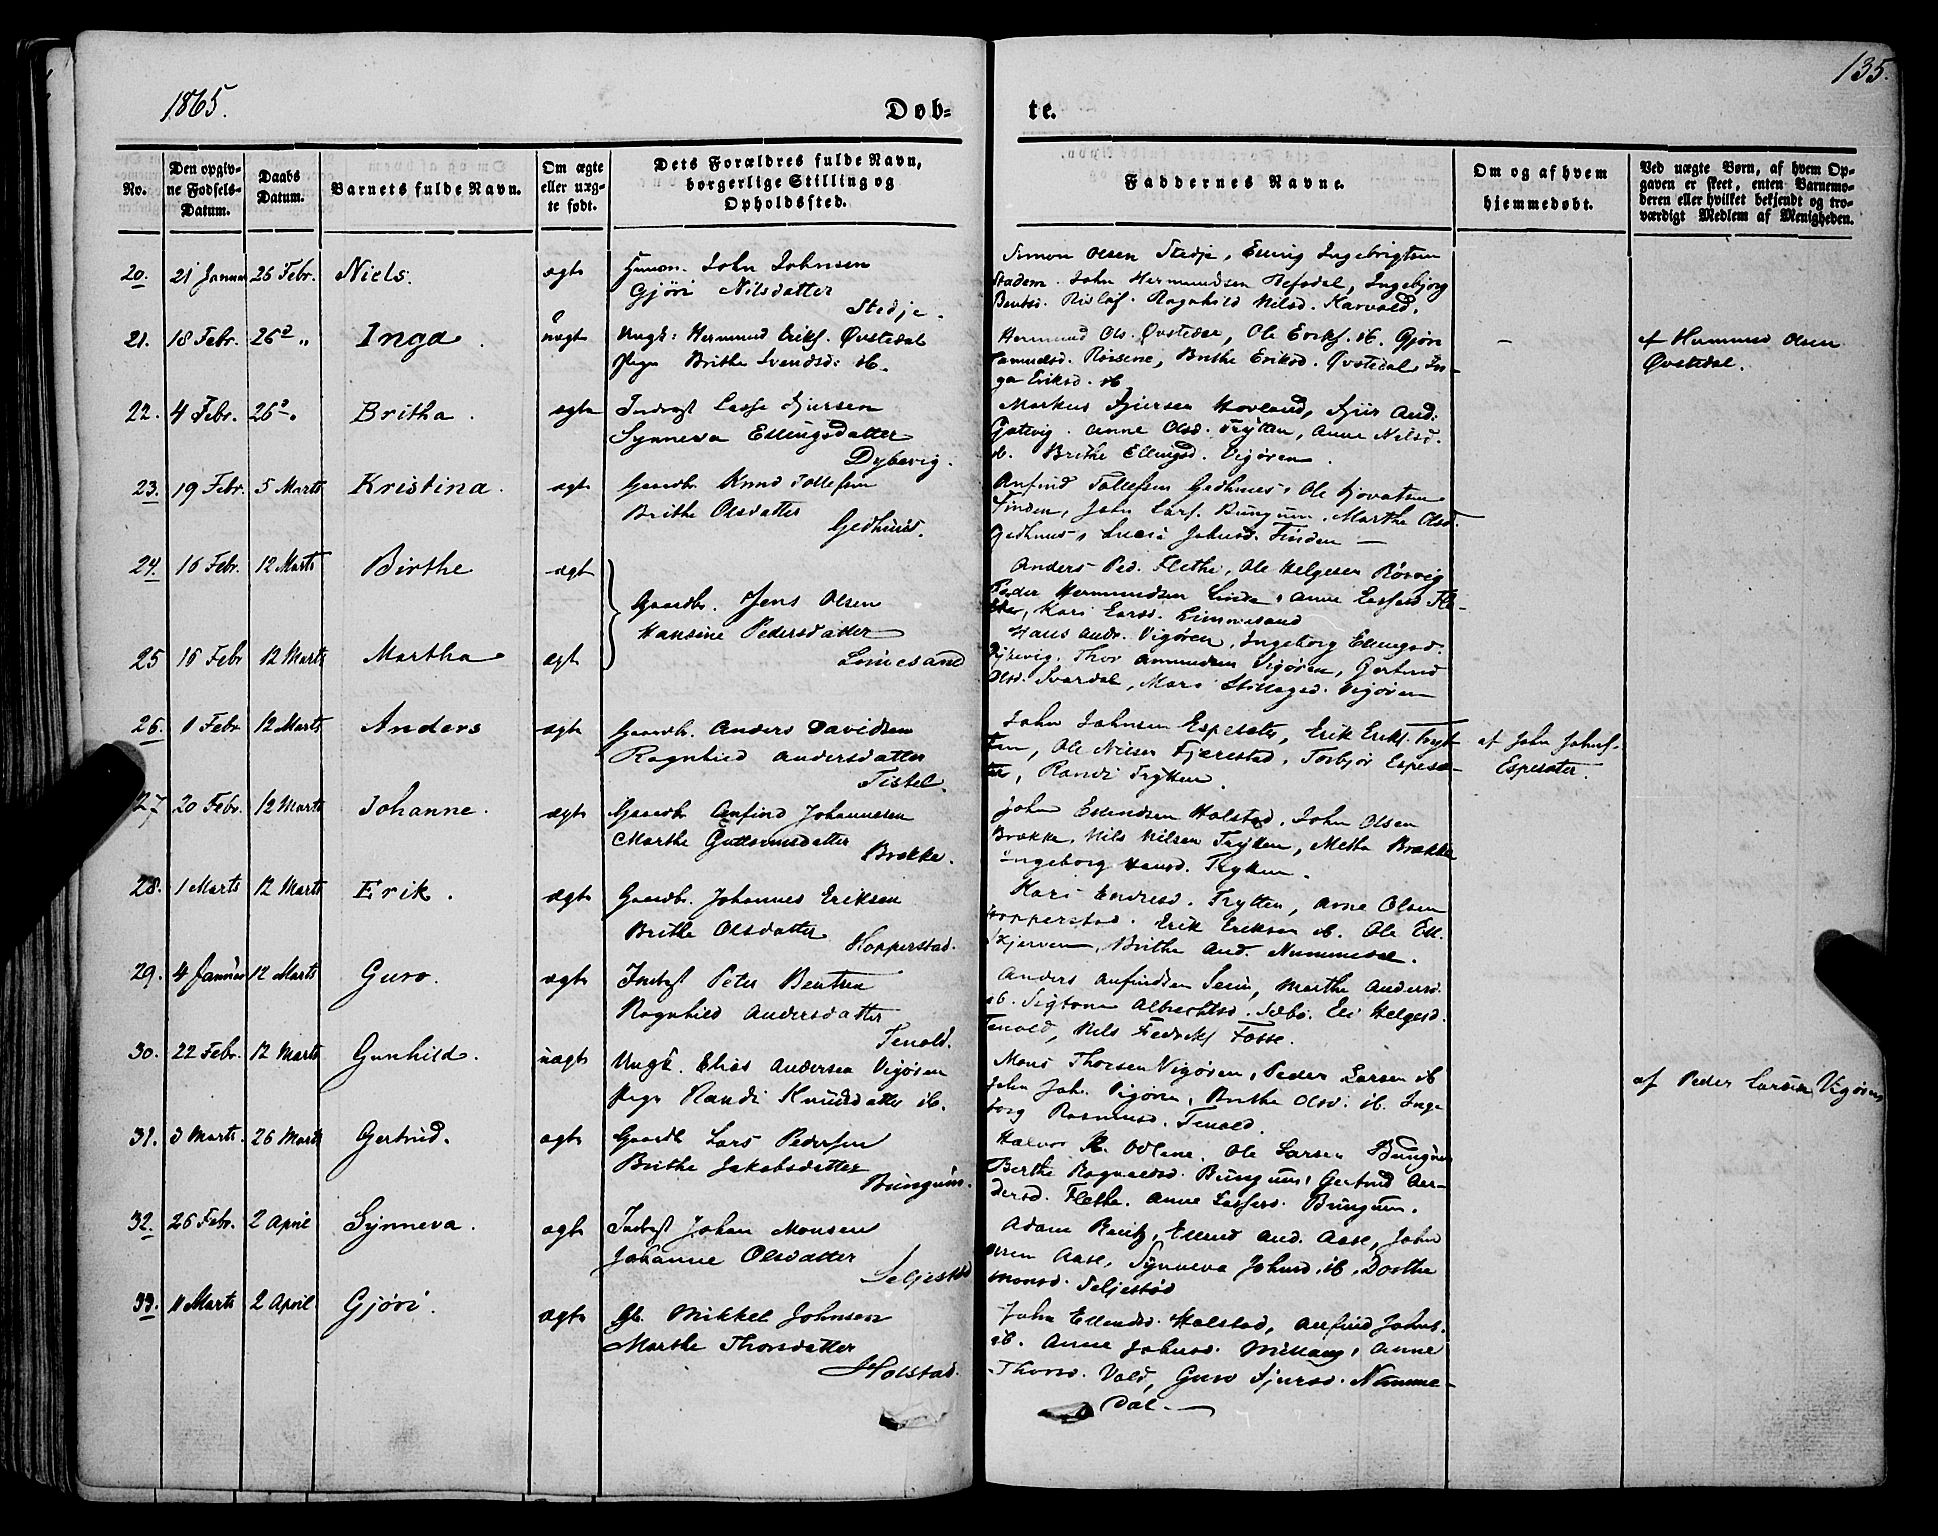 1865.
135.
Døb-
te.
No.
Den opgiv-
ne Fødsels-
Datum.
Daabs
Datum.
Barnets fulde Navn.
Om ægte
eller uæg-
te født.
Dets Forældres fulde Navn,
borgerlige Stilling og
Opholdssted.
Faddernes Navne.
Om og af hvem
hjemmedøbt.
Ved uægte Børn, af hvem Op-
gaven er skeet, enten Barnemo-
deren eller hvilket bekjendt og tro-
værdigt Medlem af Menigheden.
20. 21 Januar 26 Febr. Niels. ægte John Johnsen
Gjøri Nilsdatter
Stedje.
Simon Olsen Stedje, Elling Ingebrigtsen
John Hermundsen Refsdal, Ingebjørg
Ragnhild Nilsd. Karvold.
21. 18 Febr. 26 " Inga. uægte Ungk: Hermund Eriks. Øvstedal
Pige Brithe Svendsd: ib.
Hermund Ols. Øvstedal, Ole Eriks. ib. Gjøri
Røysene, Brithe Eriksd. Øvstedal, In-
ga Eriksd. ib.
— af Hermund Olsen
Øvstedal.
22. 4 Febr. 26 Britha. ægte Inderst Lasse Sjursen
Synneva Ellingsdatter
Dybevig.
Markus Sjursen Hovland, Sjur And.
Anne Olsd. Trytten, Anne Nilsd.
ib. Brithe Ellingsd. Vigøren.
23. 19 Febr. 5 Marts Kristina. ægt Gaardb. Knud Tollefsen
Brithe Olsdatter
Gedhuus.
Anfind Tollefsen Gedhuus, Ole Sjovatsen
Finden, John Lars. Bungum, Marthe Olsd.
Gedhuus, Lucia Johnsd. Finden —
24. 16 Febr. 12 Marts Birthe ægt
Gaardb. Jens Olsen
Hansine Pedersdatter
Linnesand
Anders Ped. Flethe, Ole Helgesen Rørvig
Peder Hermundsen Linde, Anne Lassesd. Fle-
the, Kari Larsd. Linnesand
25 16 Febr 12 Marts Martha ægt
Hans Andr. Vigøren, Ingeborg Ellingsd.
Dybevig, Thor Amundsen Vigøren, Gertrud
Olsd. Svardal, Mari Vigøren
26. 1 Febr 12 Marts Anders ægte Gaardb. Anders Davidsen
Ragnhild Andersdatter
Tistel.
John Johnsen Espesæter, Erik Eriks. Tryt-
ten, Ole Nilsen Fjærestad, Torbjør Espesæ-
ter, Randi Trytten.
af John Johns.
Espesæter.
27 20 Febr. 12 Marts Johanne. ægte Gaardb Anfind Johannesen
Marthe Guttormsdatter
Brække.
John Ellendsen Halstad, John Olsen
Brække, Nils Nilsen Trytten, Metta Brække
Ingeborg Hansd. Trytten.
28. 1 Marts 12 Marts Erik. ægte Gaardb. Johannes Eriksen
Brithe Olsdatter
Hopperstad.
Kari Endresd. Trytten, Arne Olsen
Hopperstad. Erik Eriksen ib. Ole Ell.
Skjerven, Brithe And. Nummedal.
29. 4 Januar 12 Marts Guro. ægte Inderst Peter Bentsen
Ragnhild Andersdatter
Tenold.
Anders Anfindsen Marthe Andersd.
ib. Albrechtsd. Sæbø. Eli Helgesd.
Tenold, Nils Fedriks Fosse.
30. 22 Febr. 12 Marts Gunhild. uægte Ungk. Elias Andersen Vigøren
Pige Randi Knudsdatter ib.
Mons Thorsen Vigøren, Peder Larsen ib
John Joh. Vigøren, Brithe Olsd. ib. Inge
borg Rasmusd. Tenold.
af Peder Larsen Vigøren
31. 3 Marts. 26 Marts Gertrud. ægte Gaardb Lars Pedersen
Brithe Jakobsdatter
Bungum.
Halvor Odlene, Ole Larsen Bungum
Berthe Ragnaldsd. Bungum, Gertrud An-
dersd. Flethe. Anne Lassesd. Bungum.
32. 26 Febr. 2 April Synneva. ægte Inderst Johan Monsen
Johanne Olsdatter
Seljestød
Adam Ellend And. Aase, John
Aase, Synneva Johnsd. ib, Dorthe
Monsd. Seljestød
33. 11 Marts 2 April Gjøri. ægte Gb. Mikkel Johnsen
Marthe Thorsdatter
Holstad.
John Ellendsd. Halstad, Anfind Johns.
ib. Anne Johnsd. Anne
Thorsd. Vold, Guro Sjursd. Numme-
dal. —